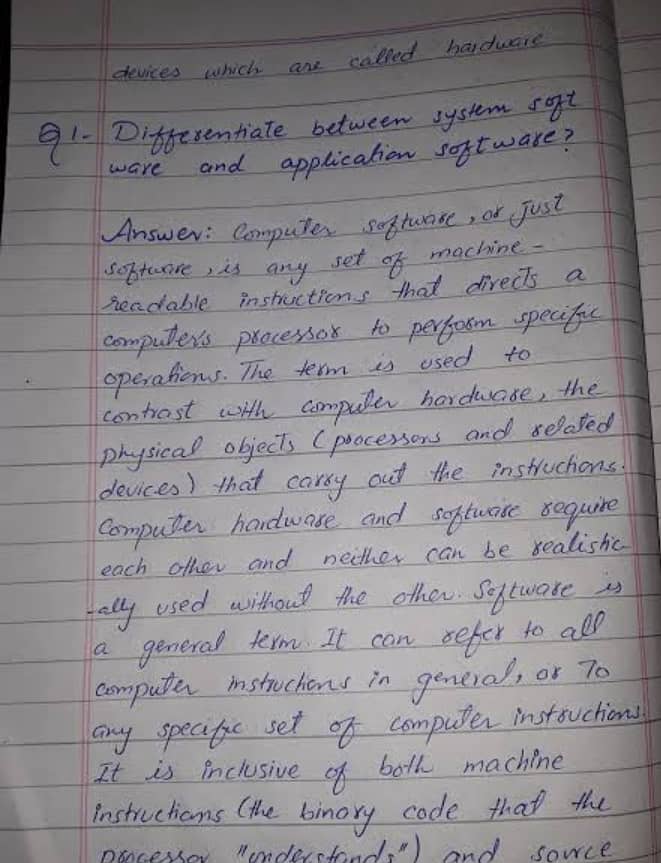 devices which are called hardware
Q1- Differentiate between system soft
ware and application software?
Answer: Computer software, or just
software, is any set of machine-
readable instructions that directs a
computer's processor to perform specific
operations. The term is used to
contrast with computer hardware, the
physical objects (processors and related
devices) that carry out the instructions.
Computer hardware and software require
each other and neither can be realistic
-ally used without the other. Software is
a general term. It can refer to all
computer instructions in general, or To
any specific set of computer instructions.
It is inclusive of both machine
instructions (the binary code that the
processor "understands") and source